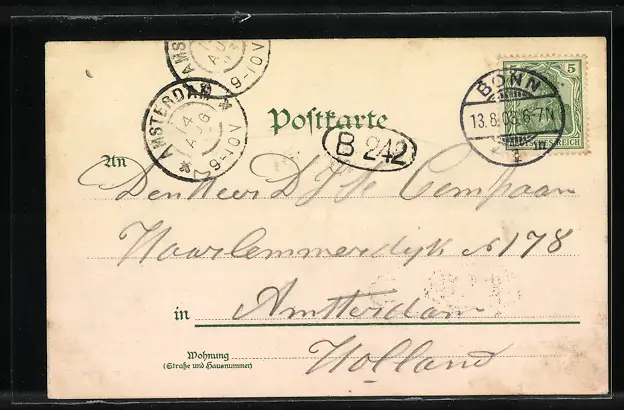 AMSTERDAM
14 AUG
9-10V
AMSTERDAM
9-10V
Postkarte
B 242
5
DEUTSCHES REICH
BONN
13.8.03.6-7N
An
Den Heer D. Compaan
Haarlemmerdijk No 178
in Amsterdam
Wohnung
(Straße und Hausnummer)
Holland